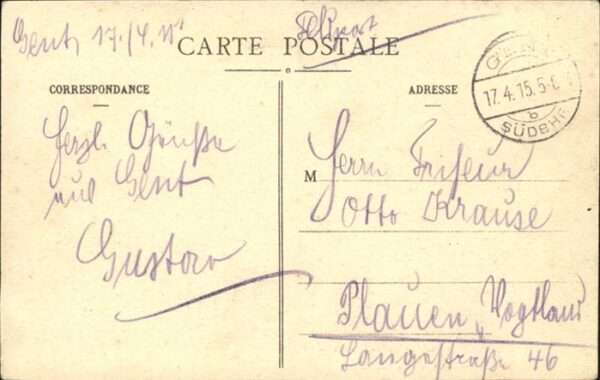 Gent, 17./4. 15.
Feldpost
CARTE POSTALE
GENT
17.4.15.5-6
b
SÜDBHF
CORRESPONDANCE
ADRESSE
Herzl. Grüße
aus Gent
Gustav
M Herrn Friseur
Otto Krause
Plauen, Vogtland
Langestraße 46